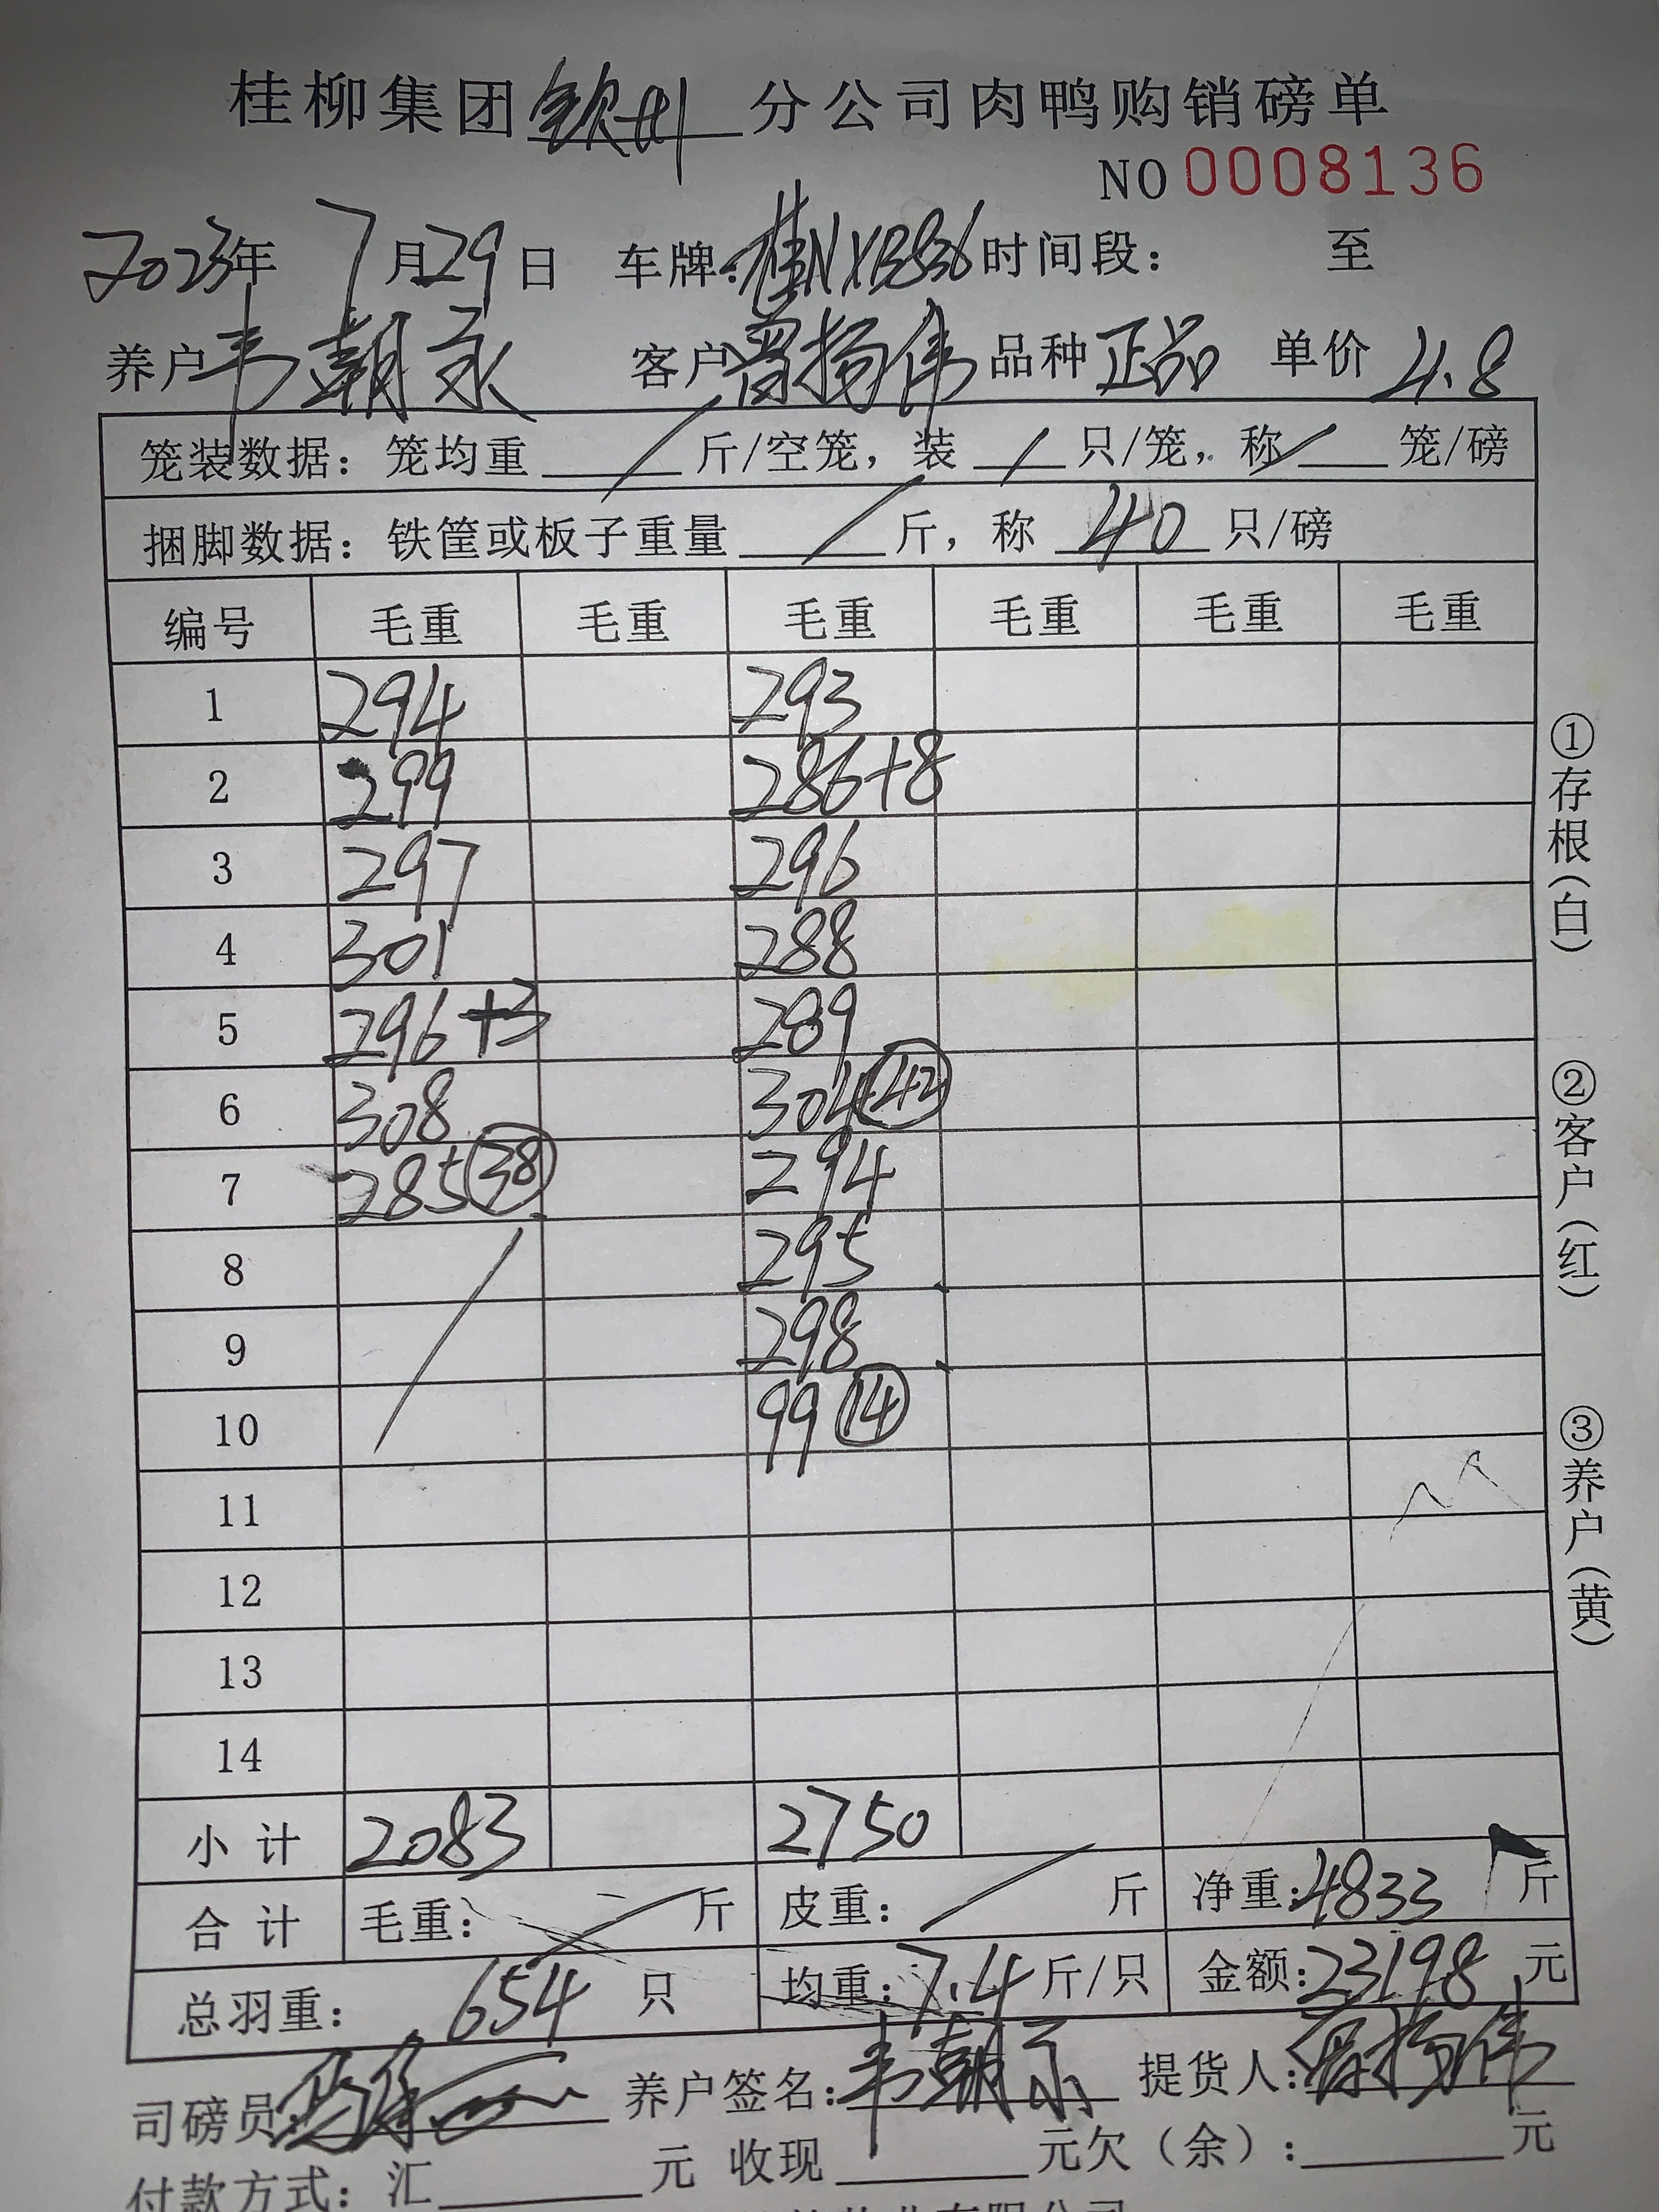 桂柳集团钦州分公司肉鸭购销磅单
NO 0008136
2023年 7月29日 车牌:桂NXB536 时间段: 至
养户 韦朝永 客户 曾扬伟 品种 正品 单价 4.8
笼装数据: 笼均重 / 斤/空笼, 装 / 只/笼, 称 / 笼/磅
捆脚数据: 铁筐或板子重量 / 斤, 称 40 只/磅
编号 毛重 毛重 毛重 毛重 毛重 毛重
1 294 293
2 299 286+8
3 297 296
4 301 288
5 296+3 289
6 308 304 ㊷
7 285 ㊳ 294
8 295
9 298
10 99 ⑭
11
12
13
14
小计 2083 2750
合计 毛重: / 斤 皮重: / 斤 净重:4833 斤
总羽重: 654 只 均重:7.4 斤/只 金额:23198 元
司磅员: 养户签名:韦朝永 提货人:曾扬伟
付款方式: 汇 元 收现 元欠(余): 元
①存根(白)
②客户(红)
③养户(黄)